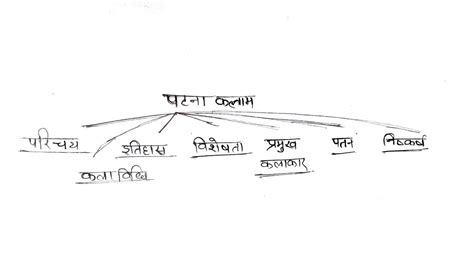 पटना कलाम
परिचय
कला विधि
इतिहास
विशेषता
प्रमुख
कलाकार
पतन
निष्कर्ष